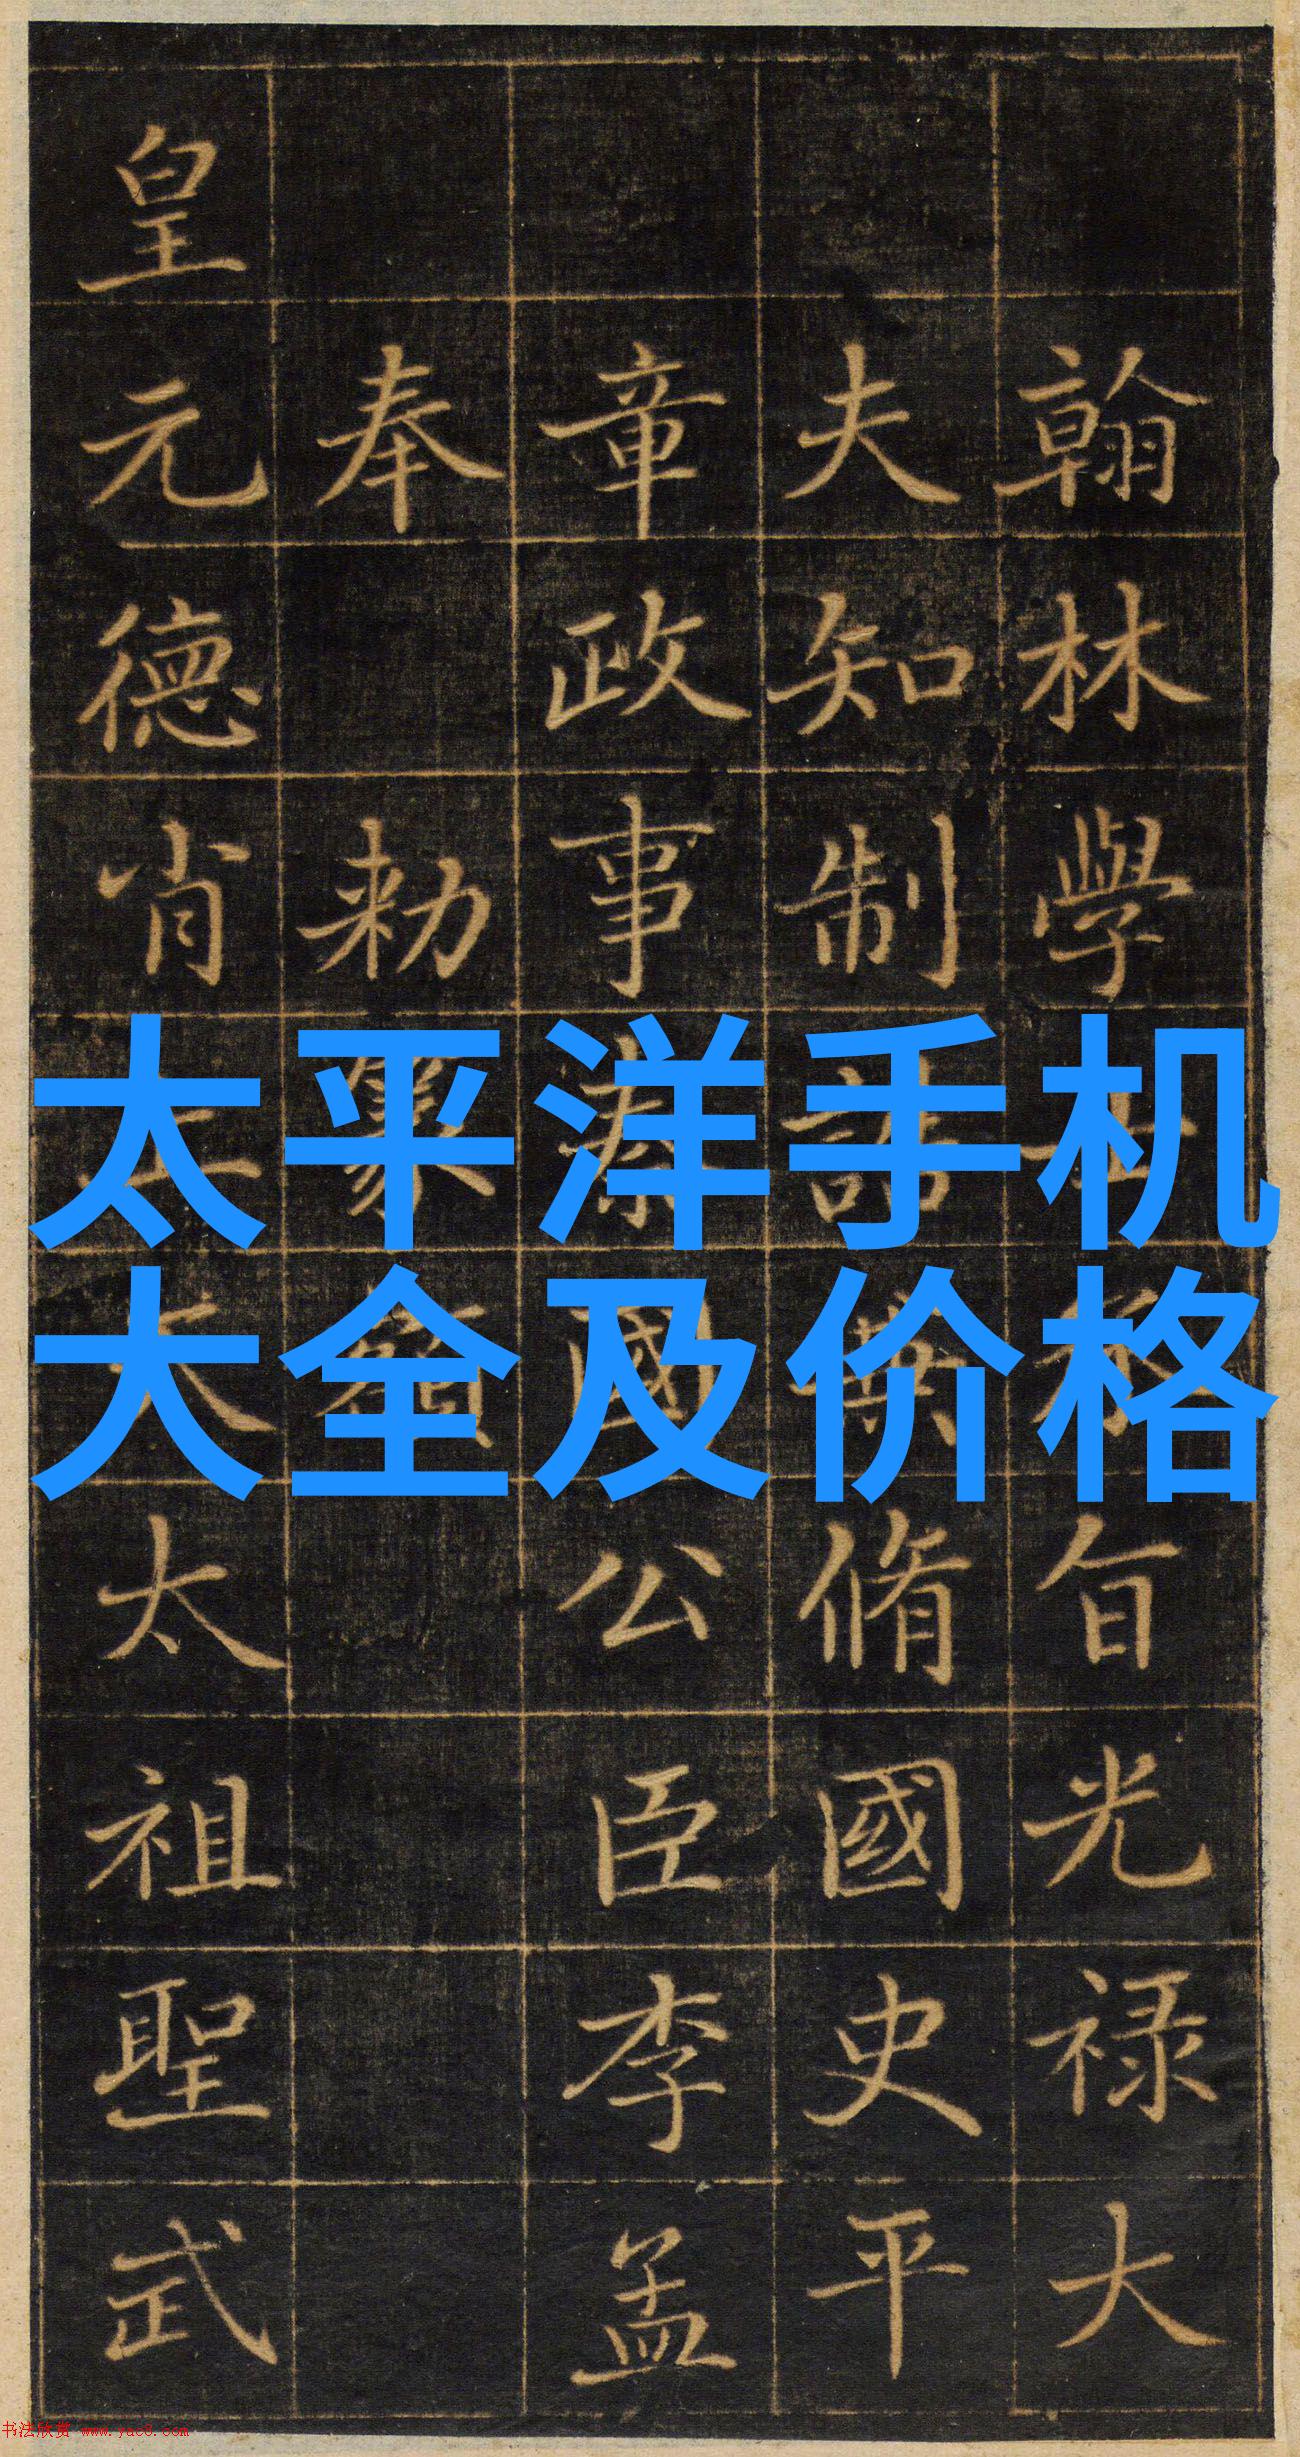 太平洋手机
大全及价格
翰林學旨光禄大
夫知制誥脩國史平
章政事國公臣李孟
奉勅篆額
皇元德肖太祖聖武
书法欣赏 www.yac8.com